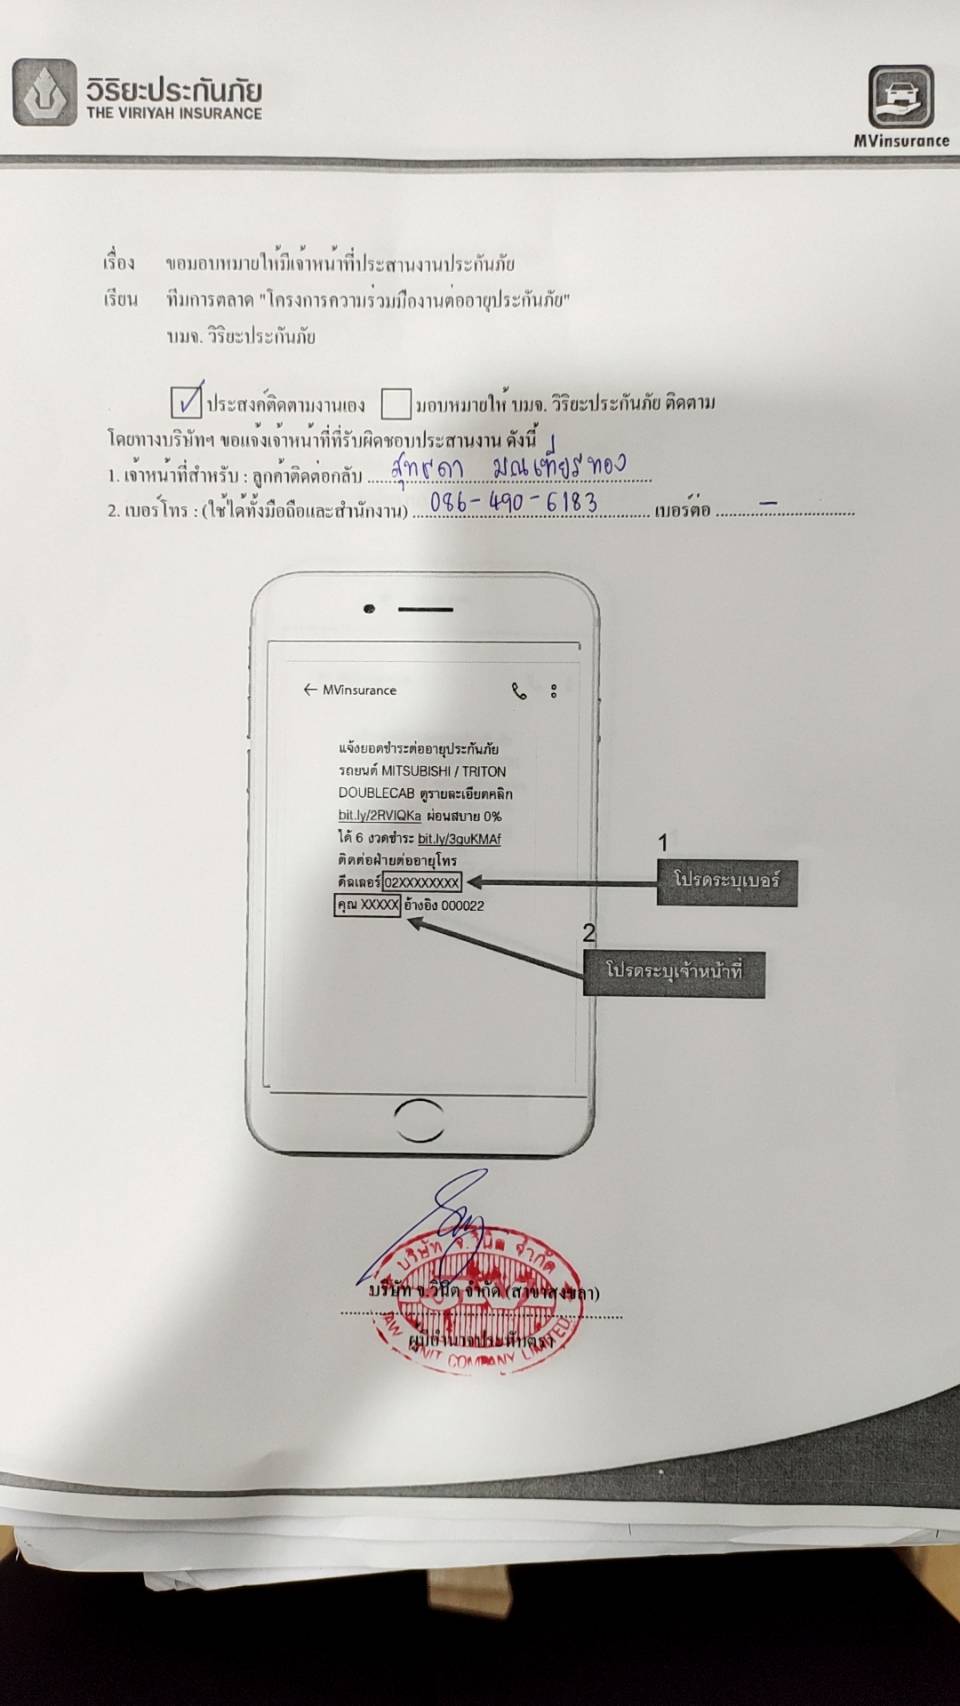 วิริยะประกันภัย
THE VIRIYAH INSURANCE
MVinsurance
เรื่อง ขอมอบหมายให้มีเจ้าหน้าที่ประสานงานประกันภัย
เรียน ทีมการตลาด "โครงการความร่วมมืองานต่ออายุประกันภัย"
บมจ. วิริยะประกันภัย
ประสงค์ติดตามงานเอง มอบหมายให้ บมจ. วิริยะประกันภัย ติดตาม
โดยทางบริษัทฯ ขอแจ้งเจ้าหน้าที่ที่รับผิดชอบประสานงาน ดังนี้
1. เจ้าหน้าที่สำหรับ : ลูกค้าติดต่อกลับ สุทรดา มณเฑียรทอง
2. เบอร์โทร : (ใช้ได้ทั้งมือถือและสำนักงาน) 086-490-6183 เบอร์ต่อ -
← MVinsurance
แจ้งยอดชำระต่ออายุประกันภัย
รถยนต์ MITSUBISHI / TRITON
DOUBLECAB ดูรายละเอียดคลิก
bit.ly/2RVIQKa ผ่อนสบาย 0%
ได้ 6 งวดชำระ bit.ly/3guKMAf
ติดต่อฝ่ายต่ออายุโทร
ดีลเลอร์ 02XXXXXXXX
คุณ XXXXX อ้างอิง 000022
1
โปรดระบุเบอร์
2
โปรดระบุเจ้าหน้าที่
บริษัท จ.วินิต จำกัด
บริษัท จ.วินิต จำกัด (สาขาสงขลา)
ผู้มีอำนาจประทับตรา
JAW VINIT COMPANY LIMITED